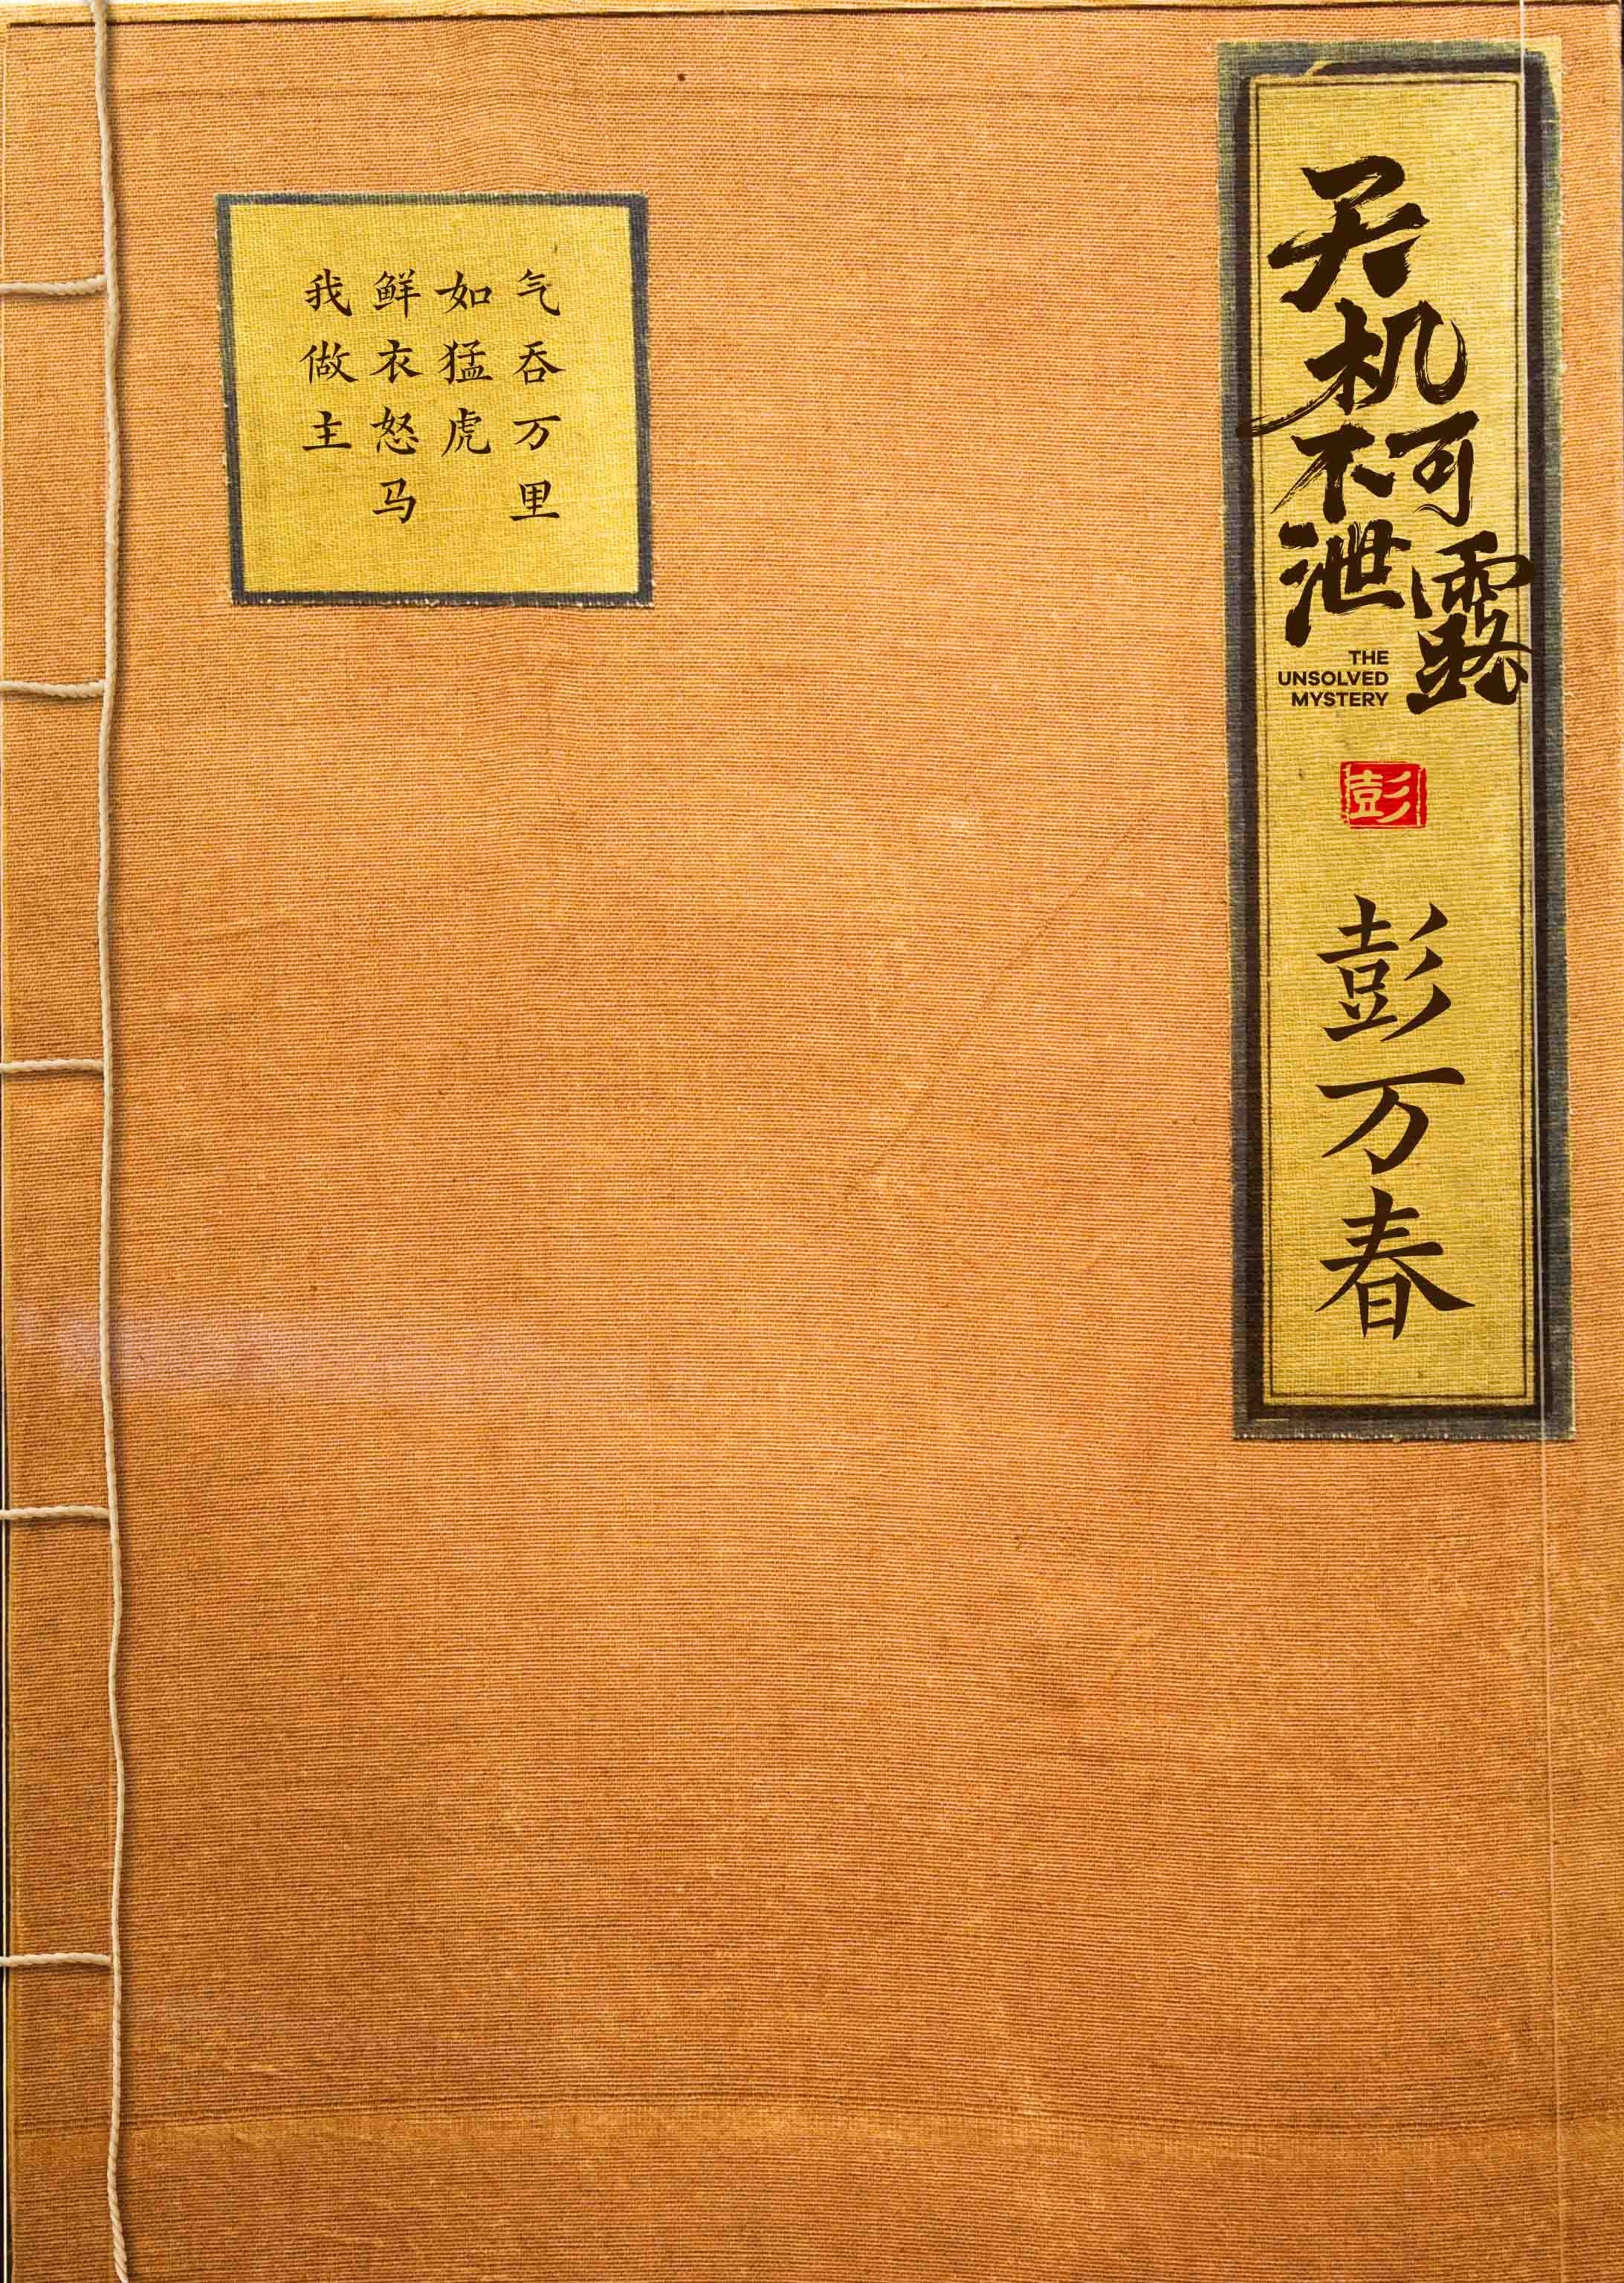 天机不可泄露
THE
UNSOLVED
MYSTERY
彭
彭万春
气吞万里
如猛虎
鲜衣怒马
我做主